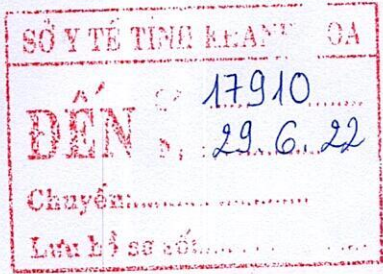 SỞ Y TẾ TỈNH KHANH OA
ĐẾN
17910
29.6.22
Chuyển:
Lưu hồ sơ số: